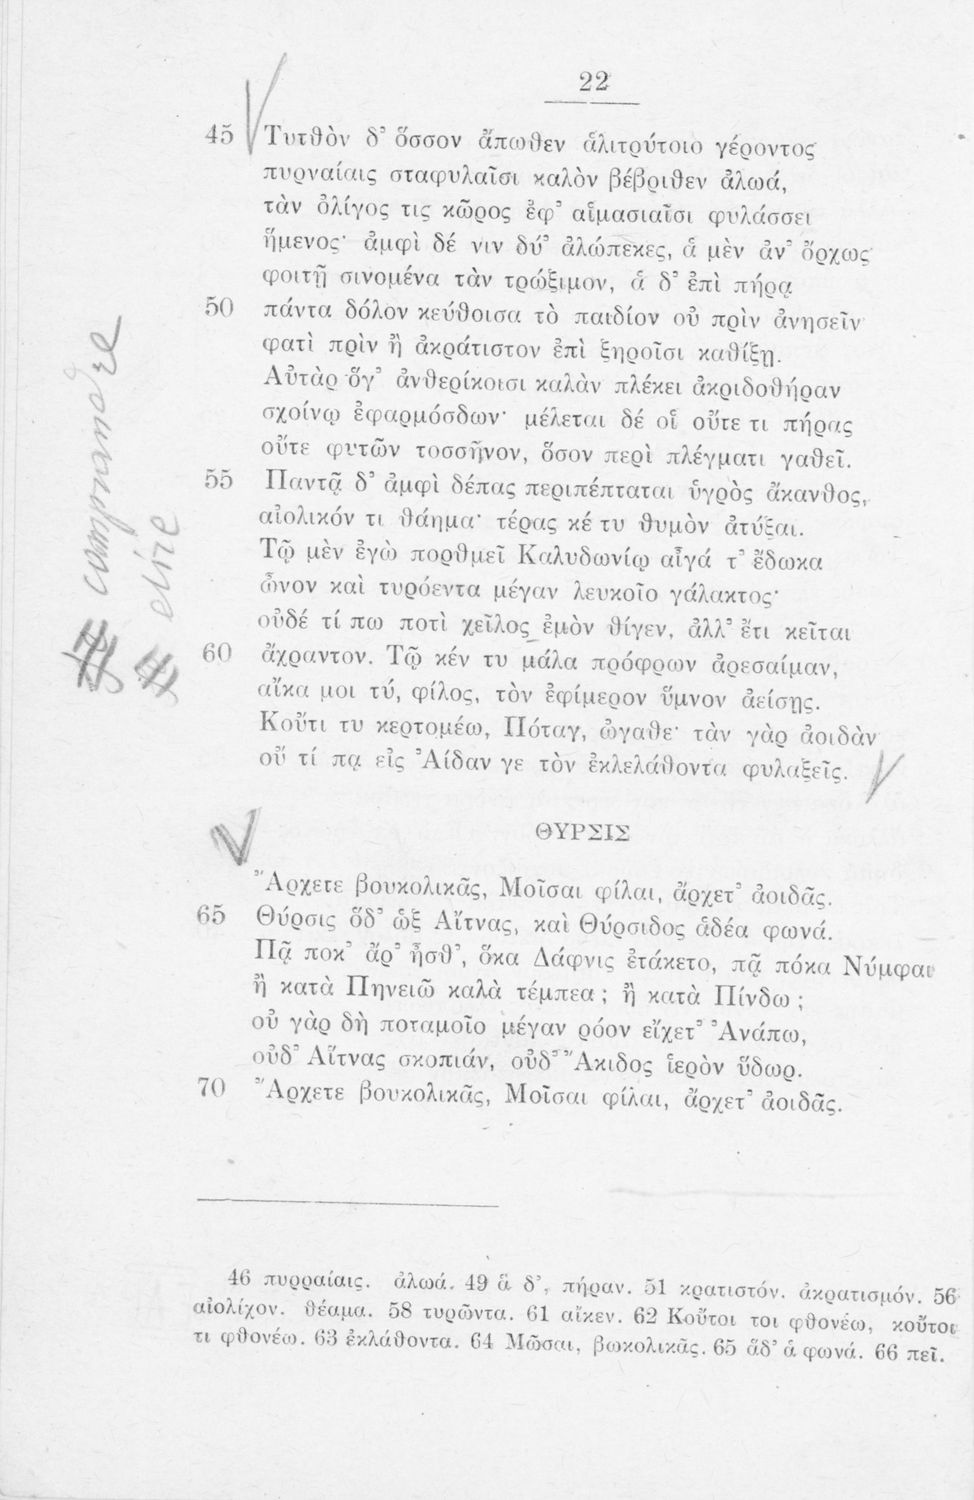 22
45 Τυτθὸν δ᾽ ὅσσον ἄπωθεν ἁλιτρύτοιο γέροντος
πυρναίαις σταφυλαῖσι καλὸν βέβριθεν ἀλωά,
τὰν ὀλίγος τις κῶρος ἐφ᾽ αἱμασιαῖσι φυλάσσει
ἥμενος· ἀμφὶ δέ νιν δύ᾽ ἀλώπεκες, ἁ μὲν ἀν᾽ ὄρχως
φοιτῇ σινομένα τὰν τρώξιμον, ἁ δ᾽ ἐπὶ πήρᾳ
50 πάντα δόλον κεύθοισα τὸ παιδίον οὐ πρὶν ἀνησεῖν
φατὶ πρὶν ἢ ἀκράτιστον ἐπὶ ξηροῖσι καθίξῃ.
Αὐτὰρ ὅγ᾽ ἀνθερίκοισι καλὰν πλέκει ἀκριδοθήραν
σχοίνῳ ἐφαρμόσδων· μέλεται δέ οἱ οὔτε τι πήρας
οὔτε φυτῶν τοσσῆνον, ὅσον περὶ πλέγματι γαθεῖ.
55 Παντᾷ δ᾽ ἀμφὶ δέπας περιπέπταται ὑγρὸς ἄκανθος,
αἰολικόν τι θάημα· τέρας κέ τυ θυμὸν ἀτύξαι.
Τῷ μὲν ἐγὼ πορθμεῖ Καλυδωνίῳ αἶγά τ᾽ ἔδωκα
ὦνον καὶ τυρόεντα μέγαν λευκοῖο γάλακτος·
οὐδέ τί πω ποτὶ χεῖλος ἐμὸν θίγεν, ἀλλ᾽ ἔτι κεῖται
60 ἄχραντον. Τῷ κέν τυ μάλα πρόφρων ἀρεσαίμαν,
αἴκα μοι τύ, φίλος, τὸν ἐφίμερον ὕμνον ἀείσῃς.
Κοὔτι τυ κερτομέω, Πόταγ, ὠγαθε· τὰν γὰρ ἀοιδὰν
οὔ τί πᾳ εἰς Ἀίδαν γε τὸν ἐκλελάθοντα φυλαξεῖς.
ΘΥΡΣΙΣ
Ἄρχετε βουκολικᾶς, Μοῖσαι φίλαι, ἄρχετ᾽ ἀοιδᾶς.
65 Θύρσις ὅδ᾽ ὡξ Αἴτνας, καὶ Θύρσιδος ἁδέα φωνά.
Πᾷ ποκ᾽ ἄρ᾽ ἦσθ᾽, ὅκα Δάφνις ἐτάκετο, πᾷ πόκα Νύμφαι
ἢ κατὰ Πηνειῶ καλὰ τέμπεα; ἢ κατὰ Πίνδω;
οὐ γὰρ δὴ ποταμοῖο μέγαν ρόον εἴχετ᾽ Ἀνάπω,
οὐδ᾽ Αἴτνας σκοπιάν, οὐδ᾽ Ἄκιδος ἱερὸν ὕδωρ.
70 Ἄρχετε βουκολικᾶς, Μοῖσαι φίλαι, ἄρχετ᾽ ἀοιδᾶς.
46 πυρραίαις. ἀλωά. 49 ἃ δ᾽, πήραν. 51 κρατιστόν. ἀκρατισμόν. 56
αἰολίχον. θέαμα. 58 τυρῶντα. 61 αἴκεν. 62 Κοὔτοι τοι φθονέω, κοὔτοι
τι φθονέω. 63 ἐκλάθοντα. 64 Μῶσαι, βωκολικᾶς. 65 ἅδ᾽ ἁ φωνά. 66 πεῖ.